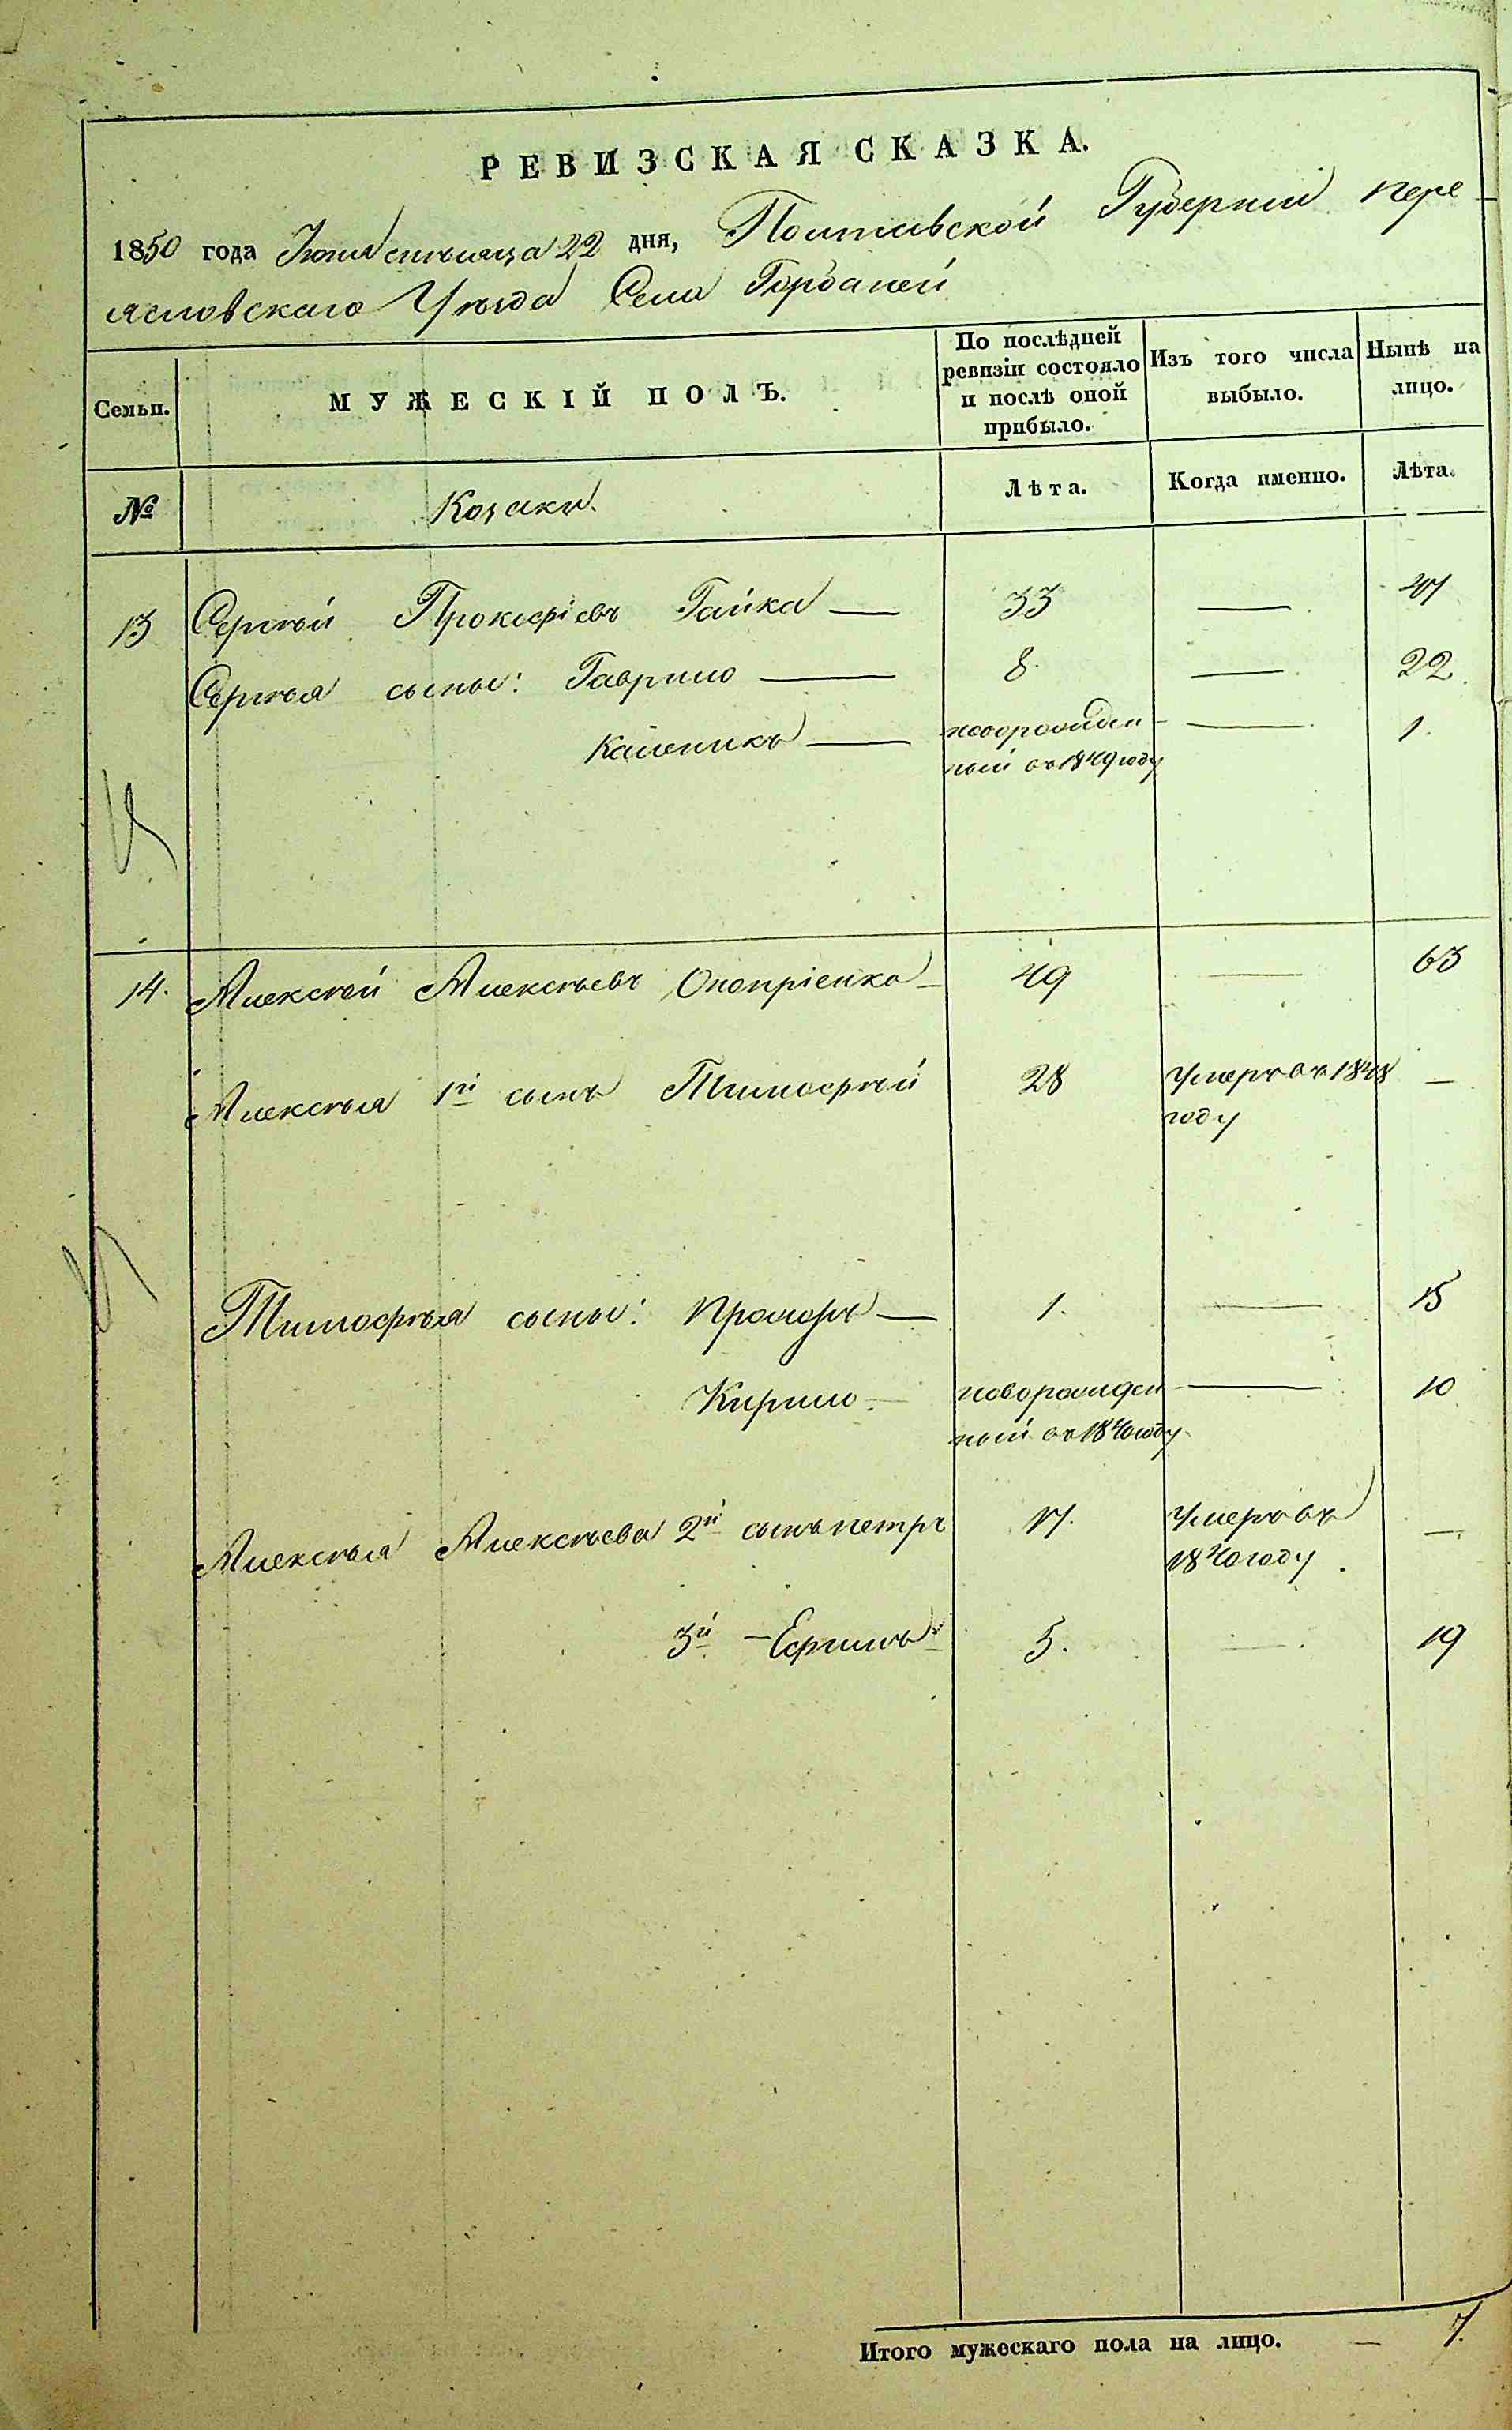 РЕВИЗСКАЯ СКАЗКА.
1850 года Іюня мѣсяца 22 дня, Полтавской Губерніи Пере
яславскаго Уѣзда Села Горбаней
Семьи. МУЖЕСКІЙ ПОЛЪ. По послѣдней ревизіи состояло и послѣ оной прибыло. Изъ того числа выбыло. Нынѣ на лицо.
№ Козаки. Лѣта. Когда именно. Лѣта.
13 Сергѣй Прокофіевъ Гайка — 33 — 47
Сергѣя сыны: Гаврило — 8. — 22.
Каленикъ — новорожден — 1.
ный въ 1849 году
14. Алексѣй Алексѣевъ Онопріенко — 49 — 63
Алексѣя 1й сынъ Тимофѣй 28 Умеръ въ 1848 —
году
Тимофѣя сыны: Прохоръ — 1. — 15
Кирило — новорожден — 10
ный въ 1840 году
Алексѣя Алексѣева 2й сынъ Петръ 17. Умеръ въ —
1840 году.
3й — Ефимъ — 5. — 19
Итого мужескаго пола на лицо. — 7.